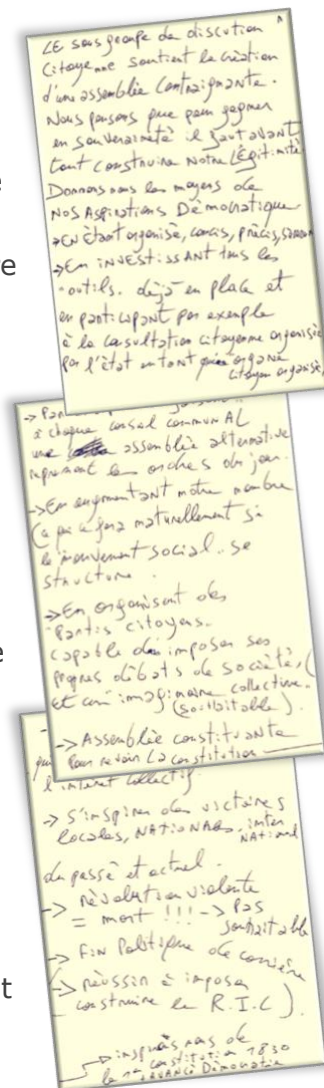 LE sous groupe de discution
Citoyenne soutient la création
d'une assemblée Contraignante.
Nous pensons que pour gagner
en souveraineté il faut avant
tout construire Notre LÉgitimité
Donnons nous les moyens de
NOS Aspirations Démocratique
→ EN Étant organisé, concis, précis,
→ Em iNVESTissANT tous les
outils. déjà en place et
en participant par exemple
à la consultation citoyenne organisée
par l'état en tant organe
citoyen organisé,
à chaque conseil commun AL
une assemblée alternative
reprenant les ordres du jour.
→ En augmentant notre nombre
(ce qui ce fera naturellement si
le mouvement social.. se
structure.
→ En organisant des
Partis citoyens.
capable d'en imposer ses
propres débats de société,
et un imaginaire collective.
(souhaitable).
→ Assemblée constituante
Pour revoir La constitution
l'interet collectif.
→ S'inspirer des victoires
locales, NATioNAles, inter
NATional
du passé et actuel.
→ révolution violente
= mort !!! → Pas
souhaitable
→ FiN Politique de carrière
→ réussir à imposer
construire le R.I.C).
→ inspirés nous de
la 1e constitution 1830
AVANCÉ Démocratie
e
re
e
t